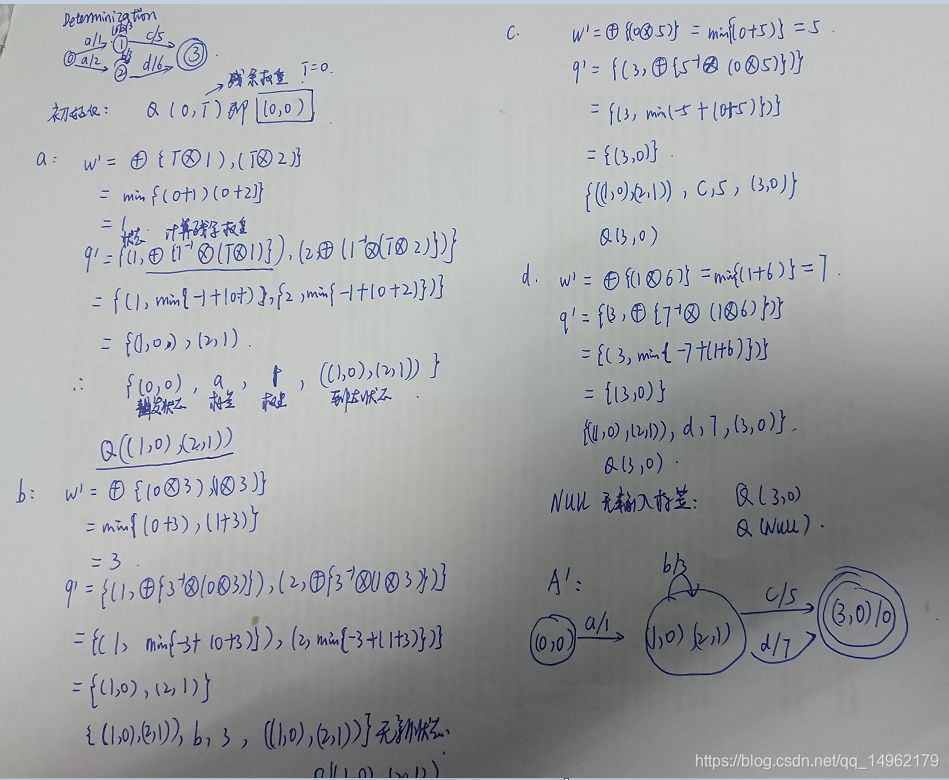 Determinization
a/1 b/3 c/5
0 1 3
a/2 b/3 2 d/6
残余权重 1̄=0.
初始化: Q (0, 1̄) 即 (0,0)
a: w' = ⊕ {1̄⊗1), (1̄⊗2)}
= min{(0+1)(0+2)}
= 1
状态 计算残余权重
q' = {(1, ⊕{1⁻¹⊗(1̄⊗1)}), (2, ⊕(1⁻¹⊗(1̄⊗2)})}
= {(1, min{-1+(0+1)}, {2, min{-1+(0+2)})}
= {(1,0), (2,1).
∴ {(0,0), a, 1, ((1,0),(2,1))}
状态 标签 权重 到达状态
Q((1,0),(2,1))
b: w' = ⊕{(0⊗3),(1⊗3)}
= min{(0+3), (1+3)}
= 3
q' = {(1, ⊕{3⁻¹⊗(0⊗3)}), (2, ⊕{3⁻¹⊗(1⊗3)})}
= {(1, min{-3+(0+3)}), (2, min{-3+(1+3)})}
= {(1,0), (2,1)}
{((1,0),(2,1)), b, 3, ((1,0),(2,1))} 无新状态.
Q((1,0),(2,1))
c. w' = ⊕{(0⊗5)} = min{(0+5)} = 5
q' = {(3, ⊕{5⁻¹⊗(0⊗5)})}
= {(3, min(-5+(0+5)})}
= {(3,0)}.
{((1,0),(2,1)), C, 5, (3,0)}
Q(3,0)
d. w' = ⊕{(1⊗6)} = min{(1+6)} = 7.
q' = {(3, ⊕{7⁻¹⊗(1⊗6)})}
= {(3, min{-7+(1+6)})}
= {(3,0)}
{((1,0),(2,1)), d, 7, (3,0)}.
Q(3,0).
NULL 无输入标签: Q(3,0)
Q(NULL).
A':
b/3
(0,0) a/1 (1,0)(2,1) c/5 (3,0)/0
d/7
https://blog.csdn.net/qq_14962179